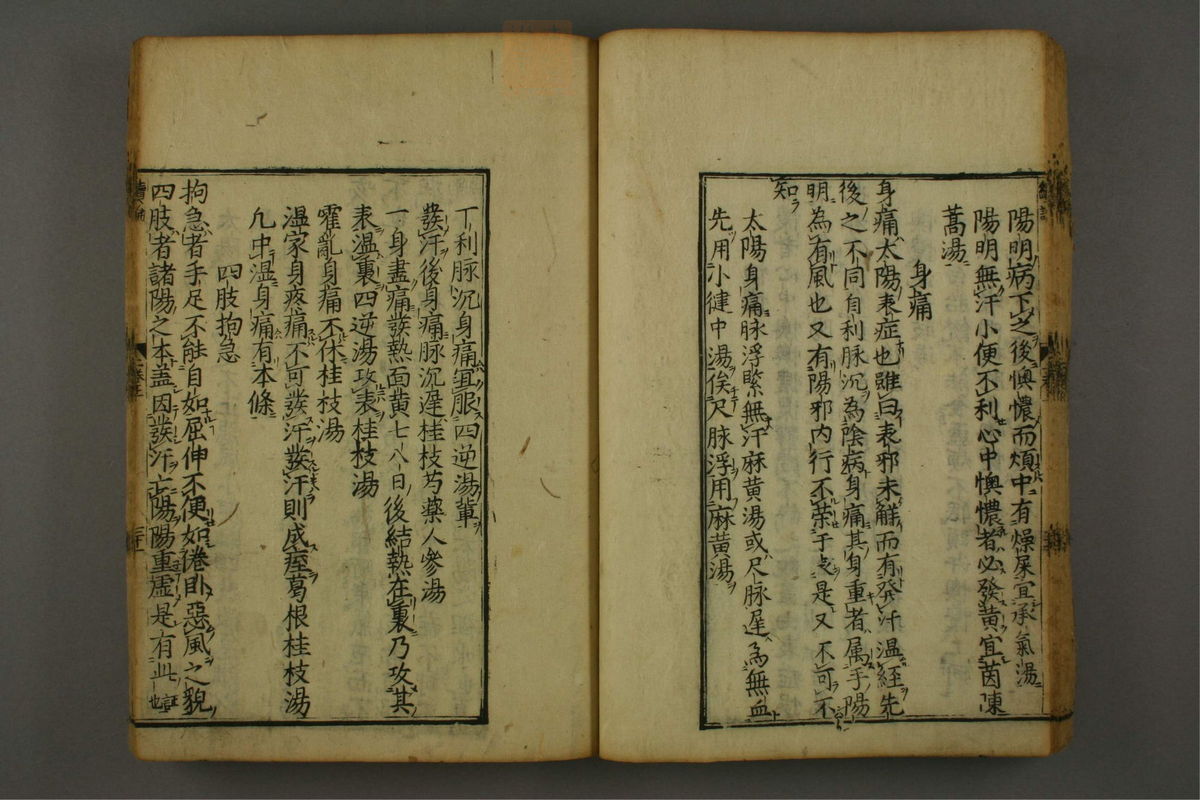 陽明病下之後懊憹而煩中有燥屎宜承氣湯
陽明無汗小便不利心中懊憹者必發黃宜茵陳
蒿湯
身痛
身痛太陽表症也雖曰表邪未觧而有発汗温経先
後之不同自利脉沉為陰病身痛其身重者属手陽
明為有風也又有陽邪内行不荣于之是又不可不
知
太陽身痛脉浮緊無汗麻黄湯或尺脉遅為無血
先用小建中湯俟尺脉浮用麻黄湯
下利脉沉身痛宜服四逆湯輩
發汗後身痛脉沉遅桂枝芍薬人參湯
一身盡痛發熱面黄七八日後結熱在裏乃攻其
表温裏四逆湯攻表桂枝湯
霍亂身痛不休桂枝湯
温家身疼痛不可發汗發汗則成痓葛根桂枝湯
凢中湿身痛有本條
四肢拘急
拘急者手足不能自如屈伸不便如倦卧惡風之貌
四肢者諸陽之本盖因發汗亡陽陽重虚是有此証也